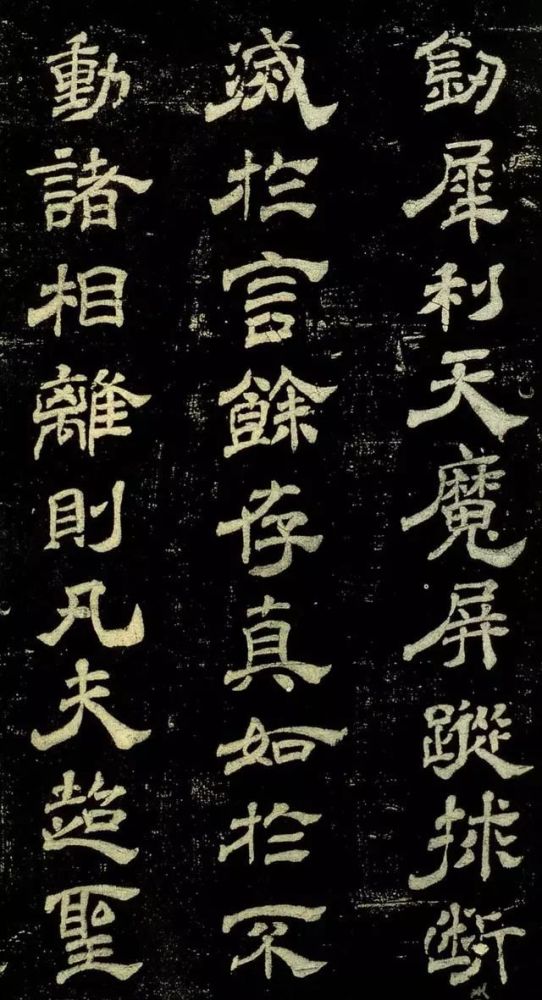 釼犀利天魔屏蹤捄断
滅於言餘存真如於不
動諸相離則凡夫超聖